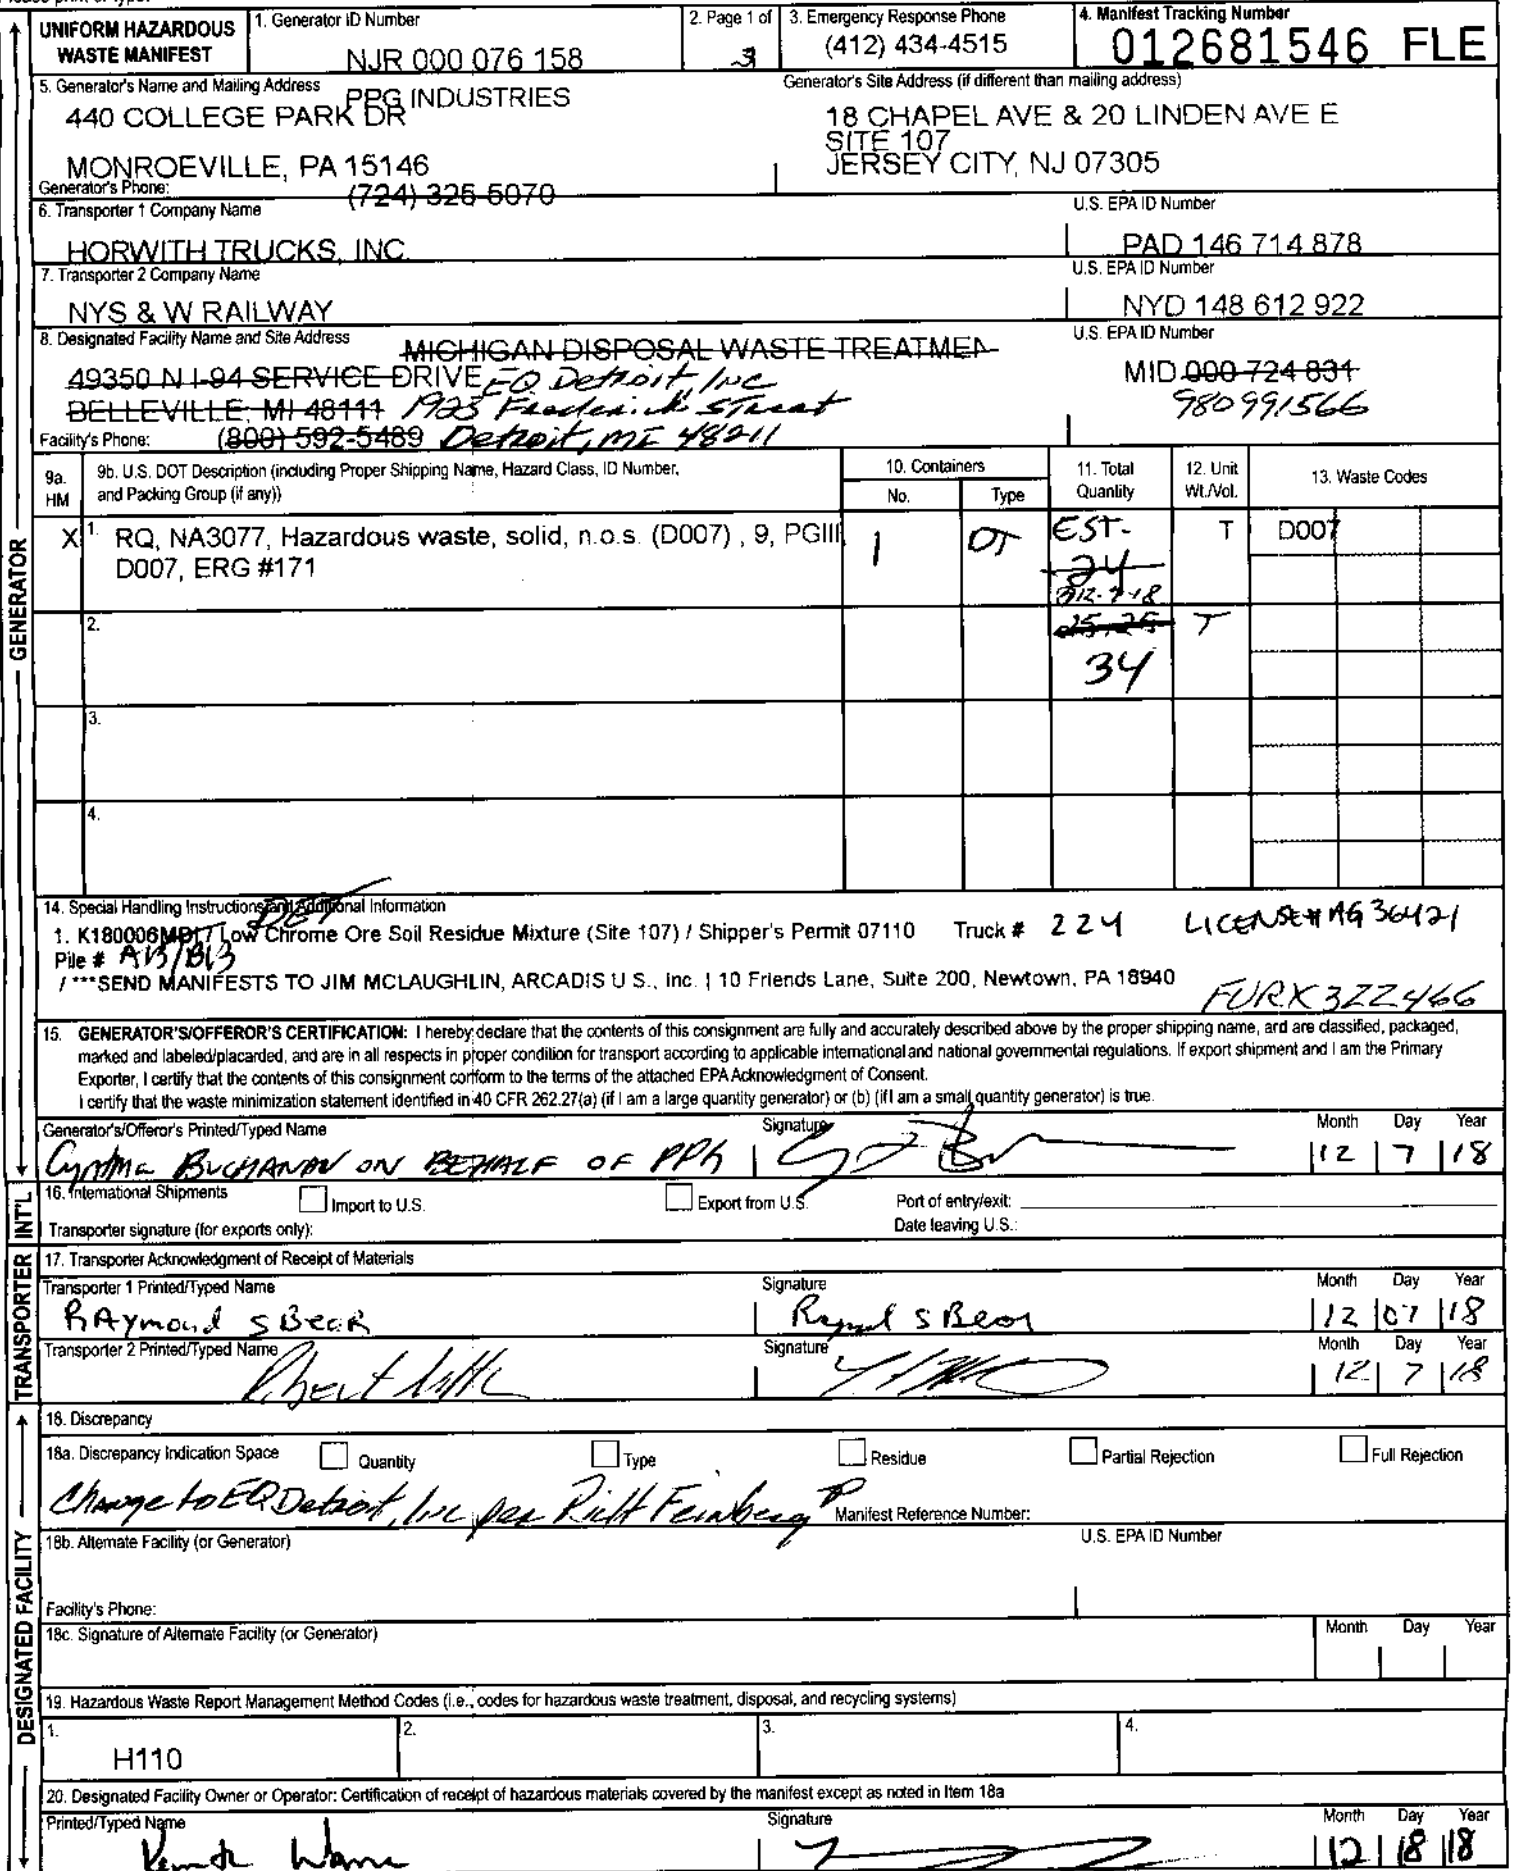 UNIFORM HAZARDOUS WASTE MANIFEST
1. Generator ID Number
NJR 000 076 158
2. Page 1 of
3
3. Emergency Response Phone
(412) 434-4515
4. Manifest Tracking Number
012681546 FLE
5. Generator's Name and Mailing Address
PPG INDUSTRIES
440 COLLEGE PARK DR
MONROEVILLE, PA 15146
Generator's Phone:
(724) 325-5070
Generator's Site Address (if different than mailing address)
18 CHAPEL AVE & 20 LINDEN AVE E
SITE 107
JERSEY CITY, NJ 07305
6. Transporter 1 Company Name
HORWITH TRUCKS, INC.
U.S. EPA ID Number
PAD 146 714 878
7. Transporter 2 Company Name
NYS & W RAILWAY
U.S. EPA ID Number
NYD 148 612 922
8. Designated Facility Name and Site Address
MICHIGAN DISPOSAL WASTE TREATMEN
49350 N I-94 SERVICE DRIVE EQ Detroit, Inc
BELLEVILLE, MI 48111 1923 Frederick Street
Facility's Phone: (800) 592-5489 Detroit, MI 48211
U.S. EPA ID Number
MID 000 724 831
980991566
9a. HM
9b. U.S. DOT Description (including Proper Shipping Name, Hazard Class, ID Number, and Packing Group (if any))
10. Containers
No.
Type
11. Total Quantity
12. Unit Wt./Vol.
13. Waste Codes
X
1. RQ, NA3077, Hazardous waste, solid, n.o.s. (D007) , 9, PGIII
D007, ERG #171
1
DT
EST-
24
12-7-18
T
D007
2.
25.25
T
34
3.
4.
14. Special Handling Instructions and Additional Information
1. K180006 Low Chrome Ore Soil Residue Mixture (Site 107) / Shipper's Permit 07110 Truck # 224 LICENSE# AG36421
Pile # A13/B13
/ ***SEND MANIFESTS TO JIM MCLAUGHLIN, ARCADIS U S., Inc. | 10 Friends Lane, Suite 200, Newtown, PA 18940
FURX322466
15. GENERATOR'S/OFFEROR'S CERTIFICATION: I hereby declare that the contents of this consignment are fully and accurately described above by the proper shipping name, and are classified, packaged,
marked and labeled/placarded, and are in all respects in proper condition for transport according to applicable international and national governmental regulations. If export shipment and I am the Primary
Exporter, I certify that the contents of this consignment conform to the terms of the attached EPA Acknowledgment of Consent.
I certify that the waste minimization statement identified in 40 CFR 262.27(a) (if I am a large quantity generator) or (b) (if I am a small quantity generator) is true.
Generator's/Offeror's Printed/Typed Name
Signature
Month Day Year
Cynthia BUCHANAN ON BEHALF OF PPG
12 7 18
16. International Shipments
Import to U.S.
Export from U.S.
Port of entry/exit:
Transporter signature (for exports only):
Date leaving U.S.:
17. Transporter Acknowledgment of Receipt of Materials
Transporter 1 Printed/Typed Name
Signature
Month Day Year
RAymond S BeaR
S Bear
12 07 18
Transporter 2 Printed/Typed Name
Signature
Month Day Year
12 7 18
18. Discrepancy
18a. Discrepancy Indication Space
Quantity
Type
Residue
Partial Rejection
Full Rejection
Change to EQ Detroit, Inc per Feinberg
Manifest Reference Number:
18b. Alternate Facility (or Generator)
U.S. EPA ID Number
Facility's Phone:
18c. Signature of Alternate Facility (or Generator)
Month Day Year
19. Hazardous Waste Report Management Method Codes (i.e., codes for hazardous waste treatment, disposal, and recycling systems)
1.
H110
2.
3.
4.
20. Designated Facility Owner or Operator: Certification of receipt of hazardous materials covered by the manifest except as noted in Item 18a
Printed/Typed Name
Signature
Month Day Year
12 18 18
GENERATOR
INT'L
TRANSPORTER
DESIGNATED FACILITY